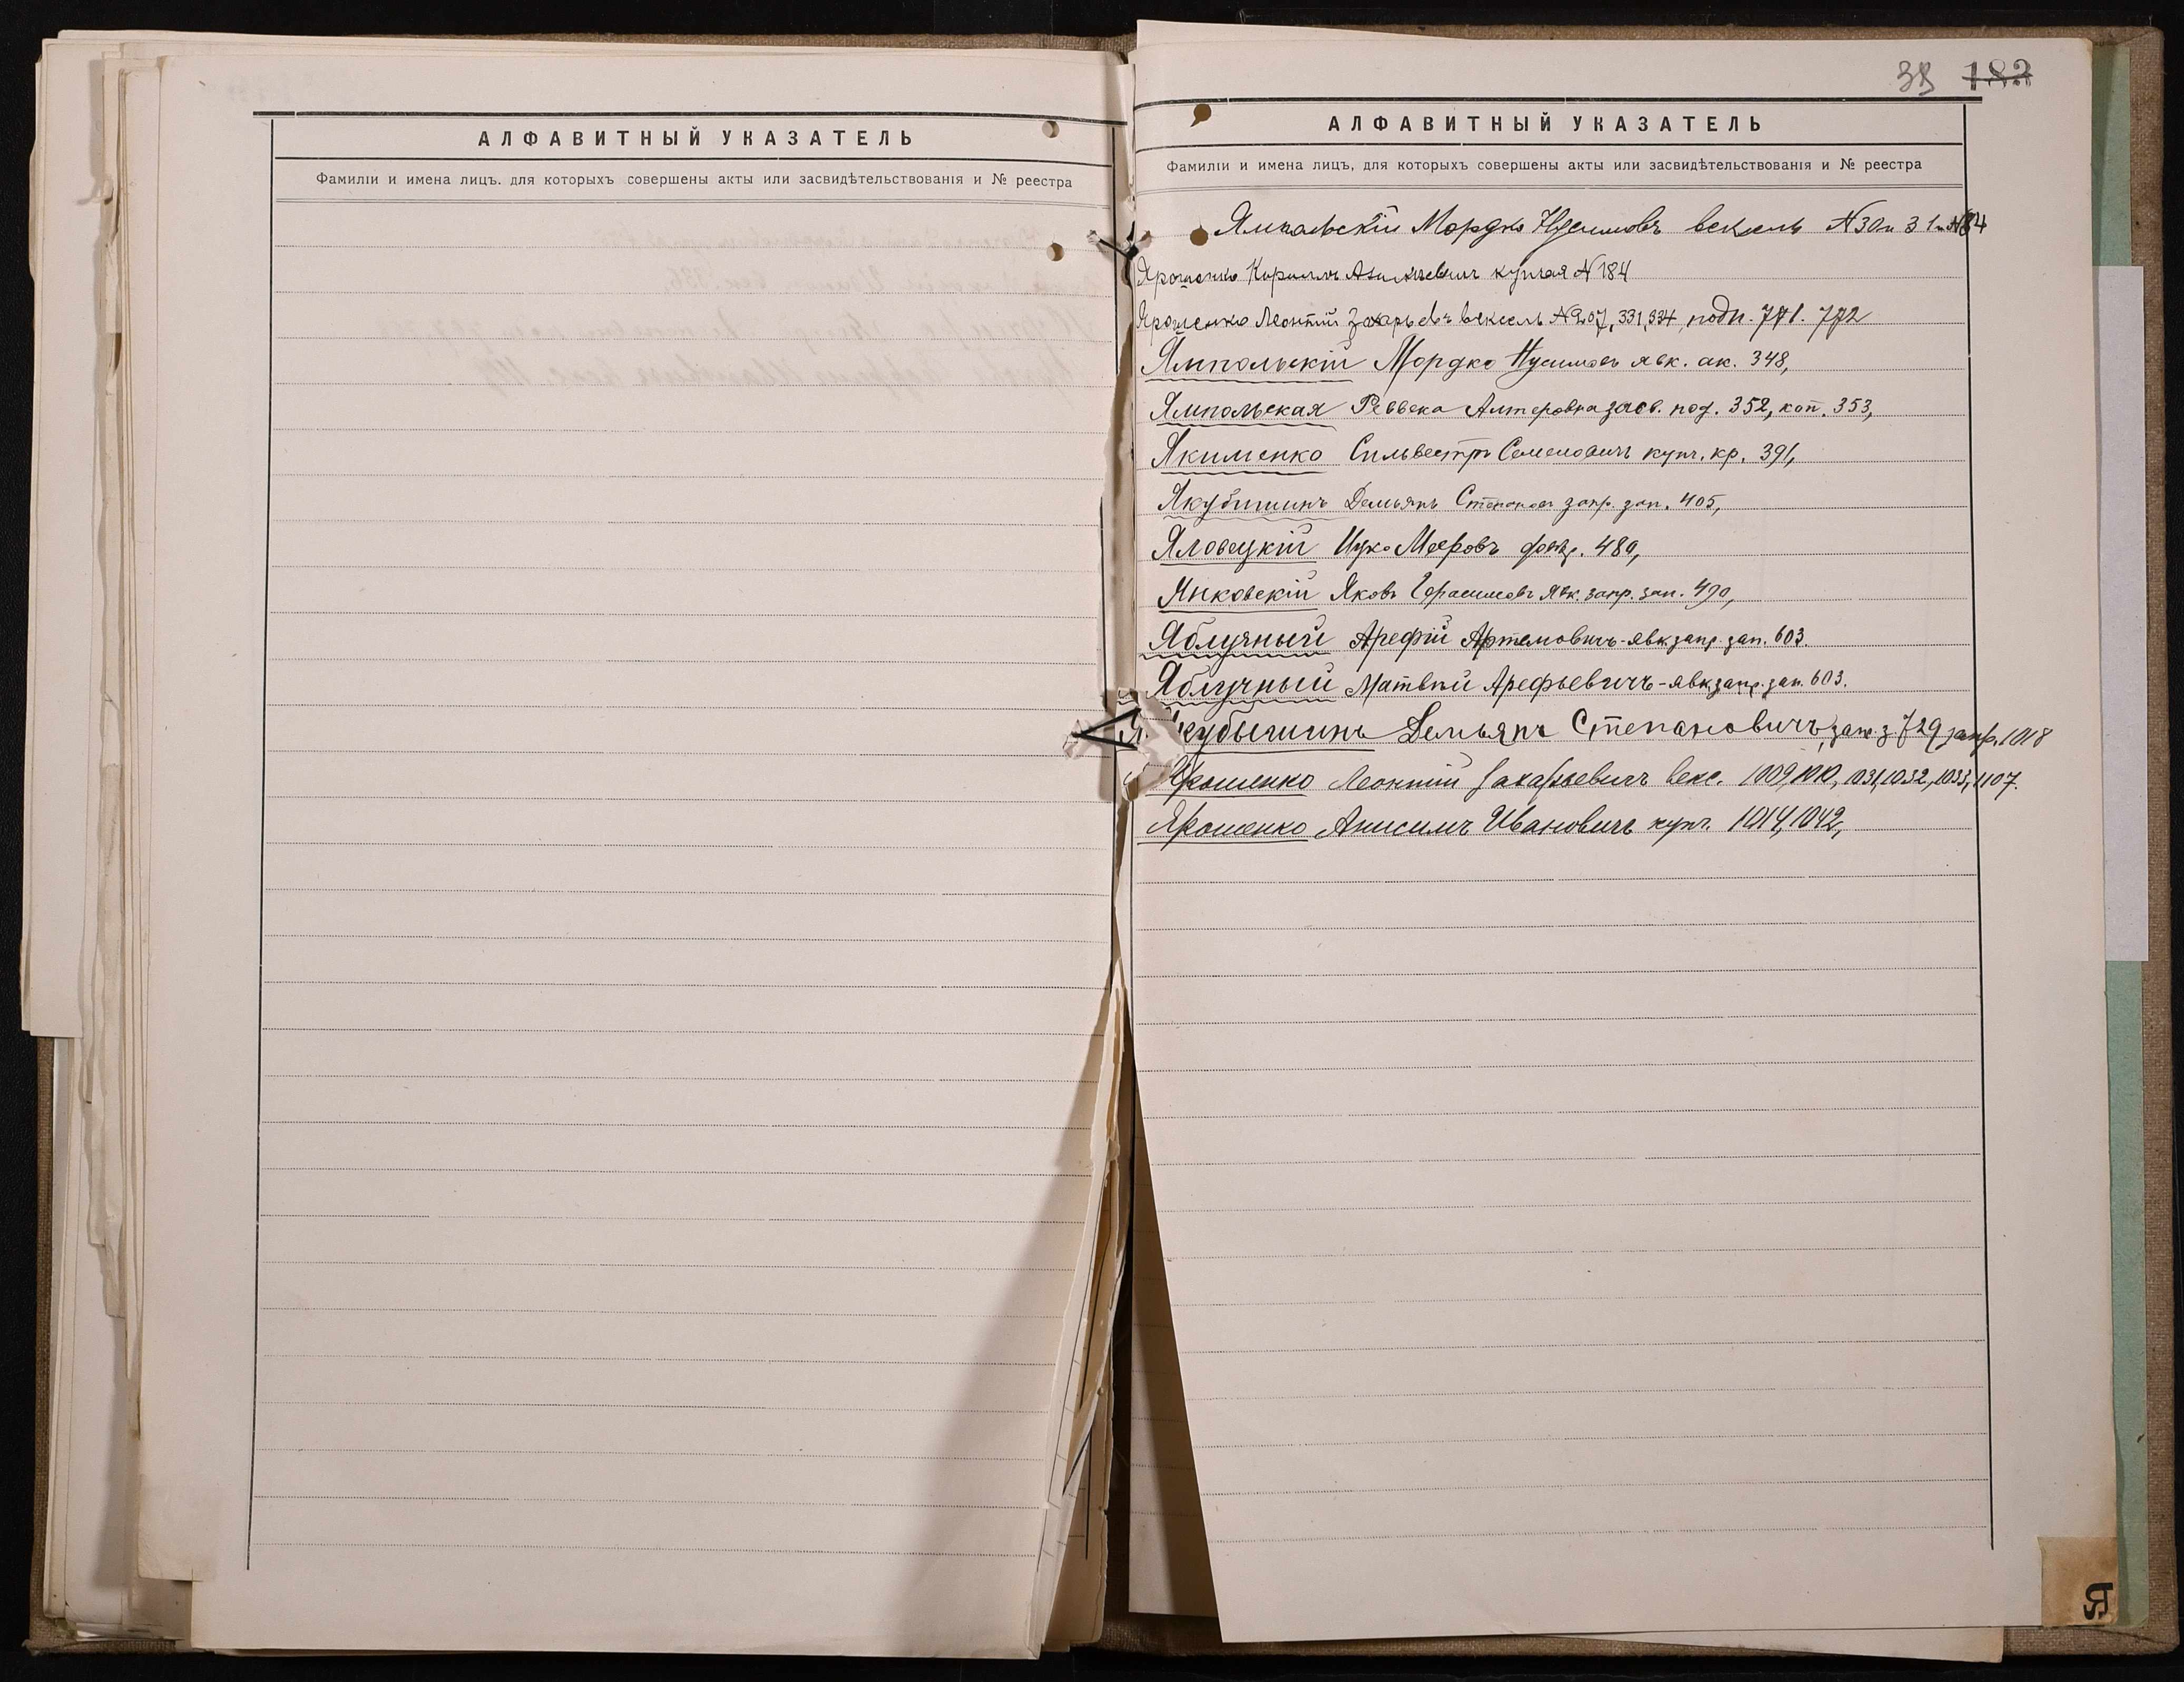 АЛФАВИТНЫЙ УКАЗАТЕЛЬ
Фамиліи и имена лицъ. для которыхъ совершены акты или засвидѣтельствованія и № реестра
38 183
АЛФАВИТНЫЙ УКАЗАТЕЛЬ
Фамиліи и имена лицъ, для которыхъ совершены акты или засвидѣтельствованія и № реестра
Ямпольскій Мордко Нусимовъ вексель N30 и 31 и N84
Ярошенко Кириллъ купчая N184
Ярошенко Леонтій Захарьевъ вексель N207, 331, 334, подп. 771. 772
Ямпольскій Мордко Нусимовъ явк. ак. 348,
Ямпольская Реввека Алтеровна засв. под. 352, коп. 353,
Якименко Сильвестръ Семеновичъ купч. кр. 391,
Якубишинъ Демьянъ Степановъ запр. зап. 405,
Яловецкій Ицко Мееровъ 489,
Янковскій Яковъ Герасимовъ явк. запр. зап. 490,
Яблучный Арефій Артемовичъ-явк запр. зап. 603.
Яблучный Матвѣй Арефьевичъ-явк запр. зап. 603.
Якубышинъ Демьянъ Степановичъ, зап. з. 729 запр. 1018
Ярошенко Леонтій Захарьевичъ векс. 1009, 1010, 1031, 1032, 1033, 1107.
Ярошенко Анисимъ Ивановичъ купч. 1014, 1042,
Я